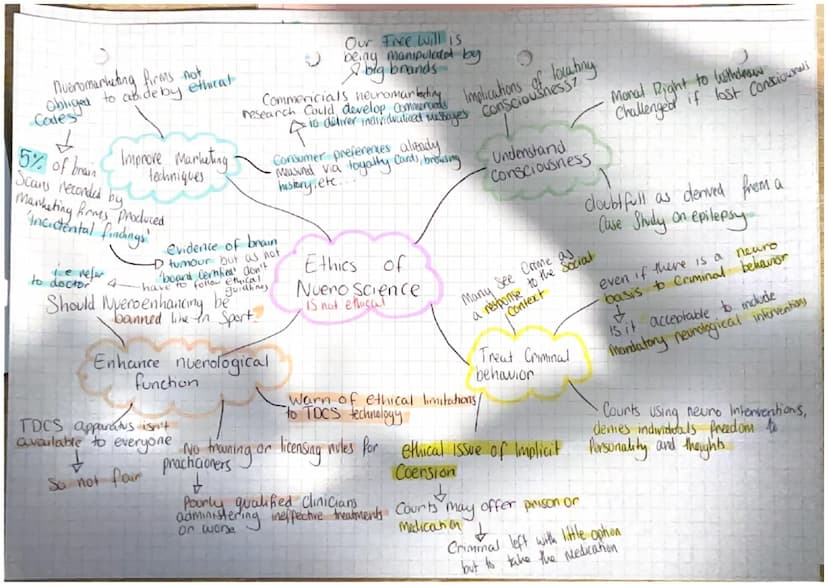 Our Free Will is
being manipulated by
big brands
Nueromarketing firms not
obliged to abide by ethical
Codes
Commericials neuromarketing
research Could develop commercials
to deliver individualised messages
5% of brain
Scans recorded by
Marketing firms produced
'incidental findings'
Improve Marketing
techniques
Consumer preferences already
via loyalty cards, browsing
history, etc...
evidence of brain
tumour but as not
don't
have to follow ethical
guidlines
i.e refer
to doctor
Implications of locating
Consciousness?
Moral Right to withdraw
Challenged if lost Consciousness
Understand
Consciousness
doubtfull as derived from a
Case Study on epilepsy
Ethics of
Nueroscience
is not ethical
Should Nueroenhancing be
banned like in Sport
Enhance nuerological
function
TDCS apparatus isn't
available to everyone
So not fair
No training or licensing rules for
Poorly qualified clinicians
administering ineffective treatments
or worse
Warn of ethical limitations
to TDCS technology
Many See Crime as
a response to the Social
Context
even if there is a neuro
basis to Criminal behavior
Is it acceptable to include
mandatory neurological intervention
Treat Criminal
behavior
ethical Issue of Implicit
Courts may offer prison or
Medication
Criminal left with little option
but to take the Medication
Courts using neuro Interventions,
denies individuals freedom to
Personality and thoughts